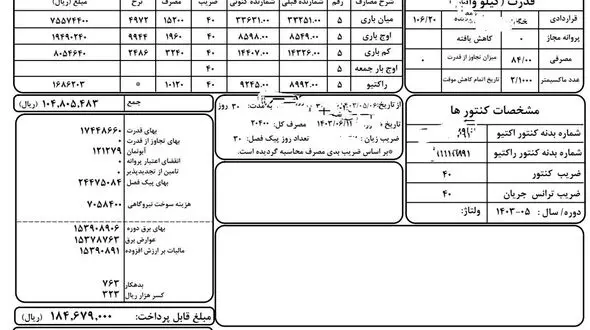 قدرت (کیلو وات)
قراردادی ۱۰۶/۲۰
پروانه مجاز ۰ کاهش یافته
مصرفی ۸۴/۰۰ میزان تجاوز از قدرت
عدد ماکسیمتر ۲/۱۰۰۰ تاریخ اتمام کاهش موقت
شرح مصارف رقم شمارنده قبلی شمارنده کنونی ضریب مصرف نرخ مبلغ (ریال)
میان باری ۵ ۳۳۲۵۱.۰۰ ۳۳۶۳۱.۰۰ ۴۰ ۱۵۲۰۰ ۴۹۷۲ ۷۵۵۷۴۴۰۰
اوج باری ۵ ۸۵۴۹.۰۰ ۸۵۹۸.۰۰ ۴۰ ۱۹۶۰ ۹۹۴۴ ۱۹۴۹۰۲۴۰
کم باری ۵ ۱۴۳۲۶.۰۰ ۱۴۴۰۷.۰۰ ۴۰ ۳۲۴۰ ۲۴۸۶ ۸۰۵۴۶۴۰
اوج بار جمعه ۵ ۴۰
راکتیو ۵ ۸۹۹۲.۰۰ ۹۲۴۵.۰۰ ۴۰ ۱۰۱۲۰ * ۱۶۸۶۲۰۳
جمع ۱۰۴,۸۰۵,۴۸۳ (ریال)
مشخصات کنتور ها
شماره بدنه کنتور اکتیو
شماره بدنه کنتور راکتیو
ضریب کنتور ۴۰
ضریب ترانس جریان ۴۰
دوره/ سال : ۰۵-۱۴۰۳ ولتاژ:
از تاریخ ۱۴۰۳/۰۵/۰۶ به مدت: ۳۰ روز
تاریخ ۱۴۰۳/۰۶/ مصرف کل: ۲۰۴۰۰
ضریب زیان تعداد روز پیک فصل: ۳۰
*بر اساس ضریب بدی مصرف محاسبه گردیده است.
بهای قدرت ۱۷۴۴۸۶۶۰
بهای تجاوز از قدرت ۰
آبونمان ۱۲۱۲۷۹
انقضای اعتبار پروانه ۰
تامین از تجدیدپذیر ۰
بهای پیک فصل ۲۴۴۷۵۰۸۴
هزینه سوخت نیروگاهی ۷۰۵۸۴۰۰
بهای برق دوره ۱۵۳۹۰۸۹۰۶
عوارض برق ۱۵۳۷۸۷۶۳
مالیات بر ارزش افزوده ۱۵۳۹۰۸۹۱
بدهکار ۷۶۳
کسر هزار ریال ۳۲۳
مبلغ قابل پرداخت: ۱۸۴,۶۷۹,۰۰۰ (ریال)